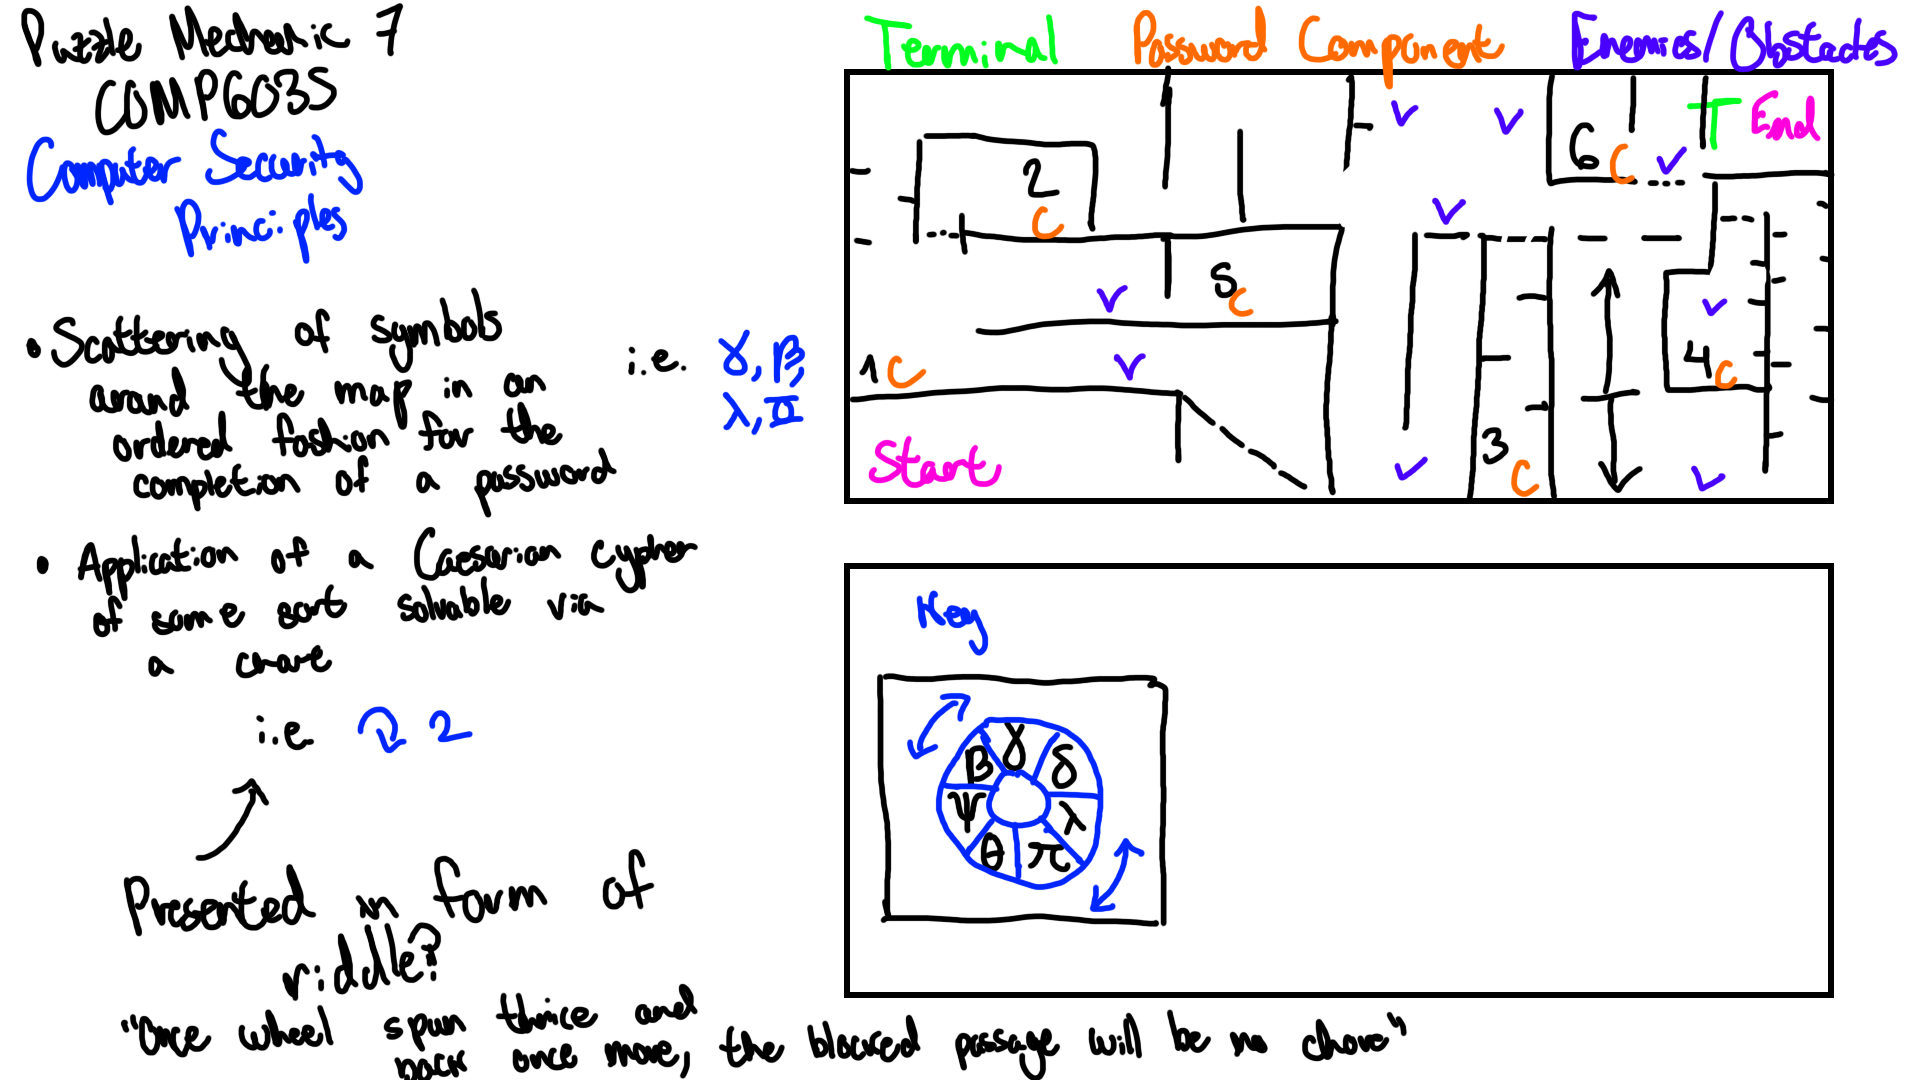 Puzzle Mechanic 7
COMP6035
Computer Security
Principles
• Scattering of symbols
around the map in an
ordered fashion for the
completion of a password
i.e. γ, β,
λ, π
• Application of a Caesarian cypher
of some sort solvable via
a
i.e 2
Presented in form of
riddle?
"Once wheel spun thrice and
back once more, the blocked passage will be no chore"
Terminal Password Component Enemies/Obstacles
2
C
V
V
6
C
V
T End
V
5
C
V
1 C
V
V
4
C
3
C
V
V
Start
Key
β γ δ
ψ λ
θ π